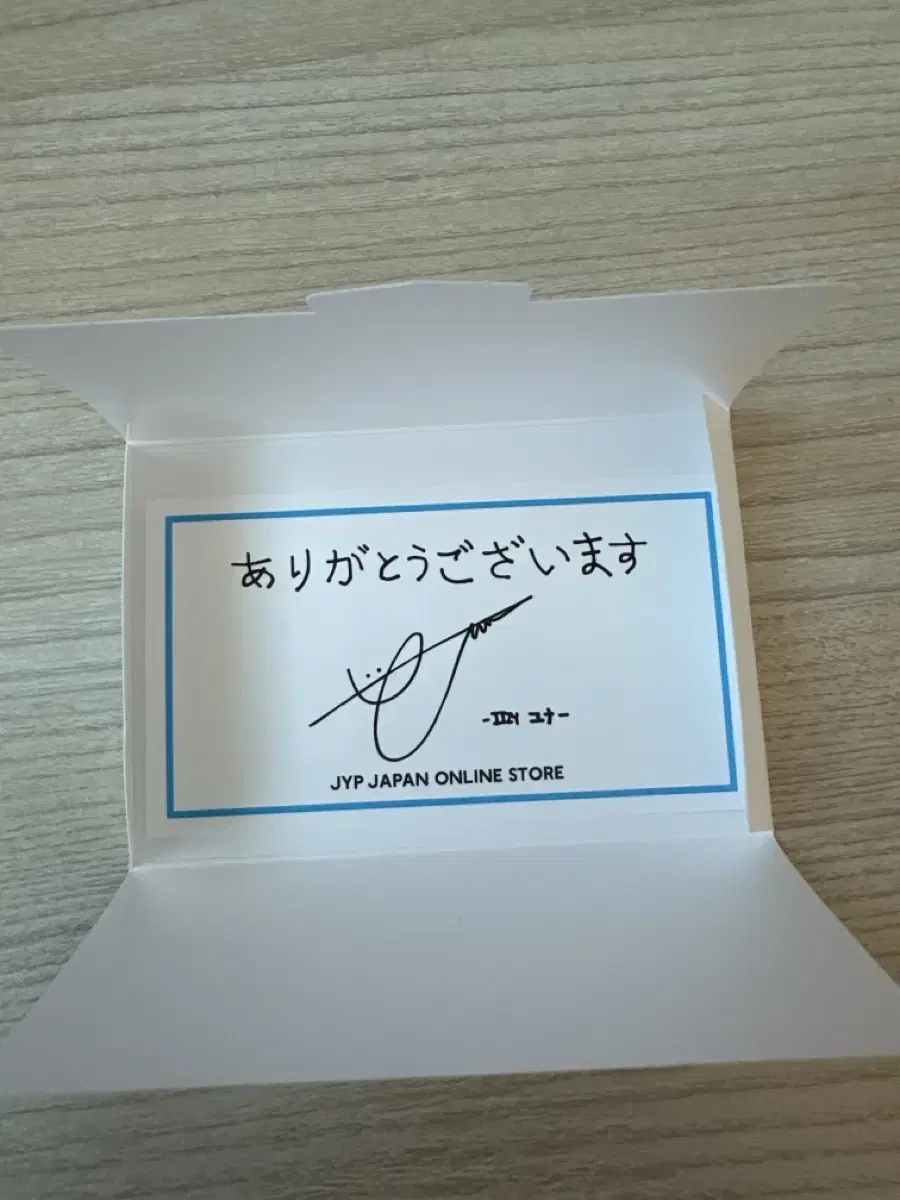 ありがとうございます
-ITZY ユナ-
JYP JAPAN ONLINE STORE